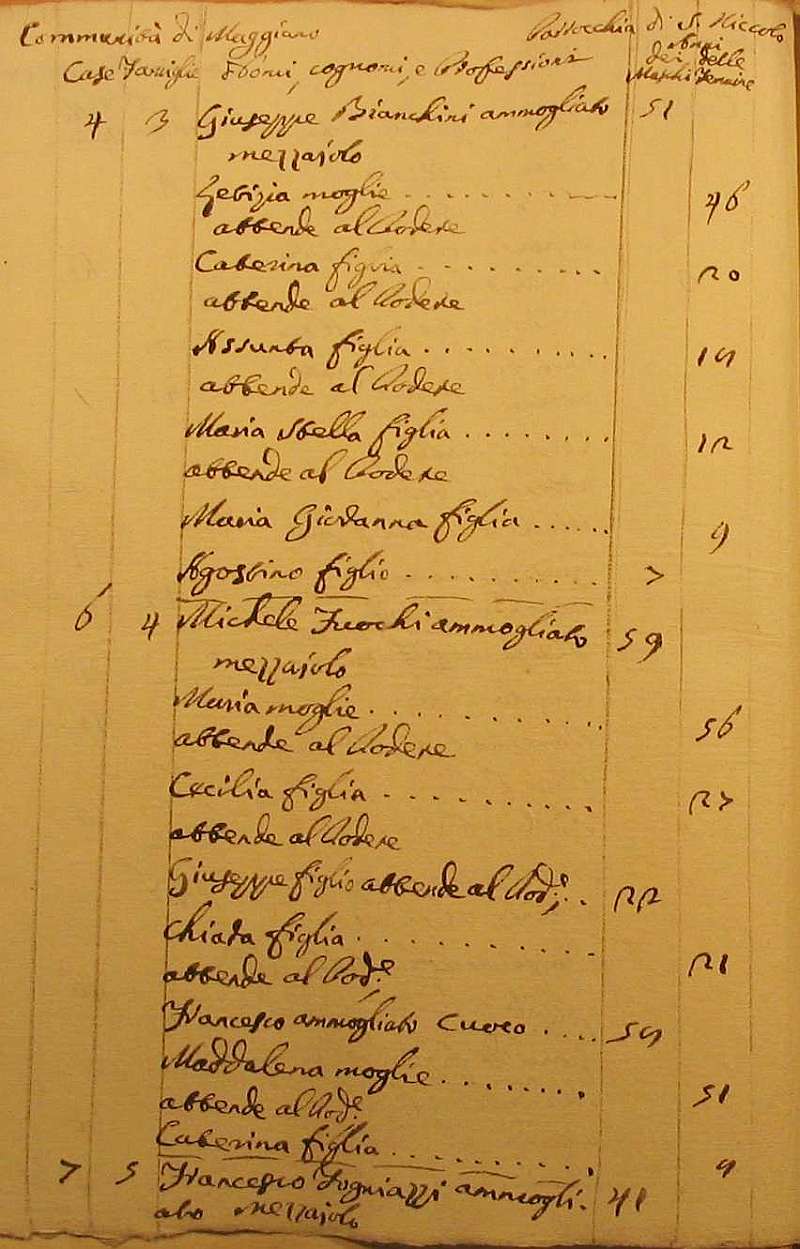 Communità di Maggiano Parrocchia di S. Niccolo
Case Famiglie Nomi, cognomi, e Professioni Anni dei Maschi delle Femine
4 3 Giuseppe Bianchini ammogliato 51
mezzajolo
moglie 46
attende al Podere
Caterina figlia 20
attende al Podere
Assunta figlia 15
attende al Podere
Maria Stella figlia 12
attende al Podere
Maria Giovanna figlia 9
Agostino figlio 7
6 4 Michele Fuochi ammogliato 59
mezzajolo
Maria moglie 56
attende al Podere
Cecilia figlia 27
attende al Podere
Giuseppe figlio attende al Pod.e 22
Chiara figlia 21
attende al Pod.e
Francesco ammogliato Cuoco 55
Maddalena moglie 51
attende al Pod.e
Caterina figlia 9
7 5 Francesco Fogniazzi ammogli- 41
ato mezzajolo